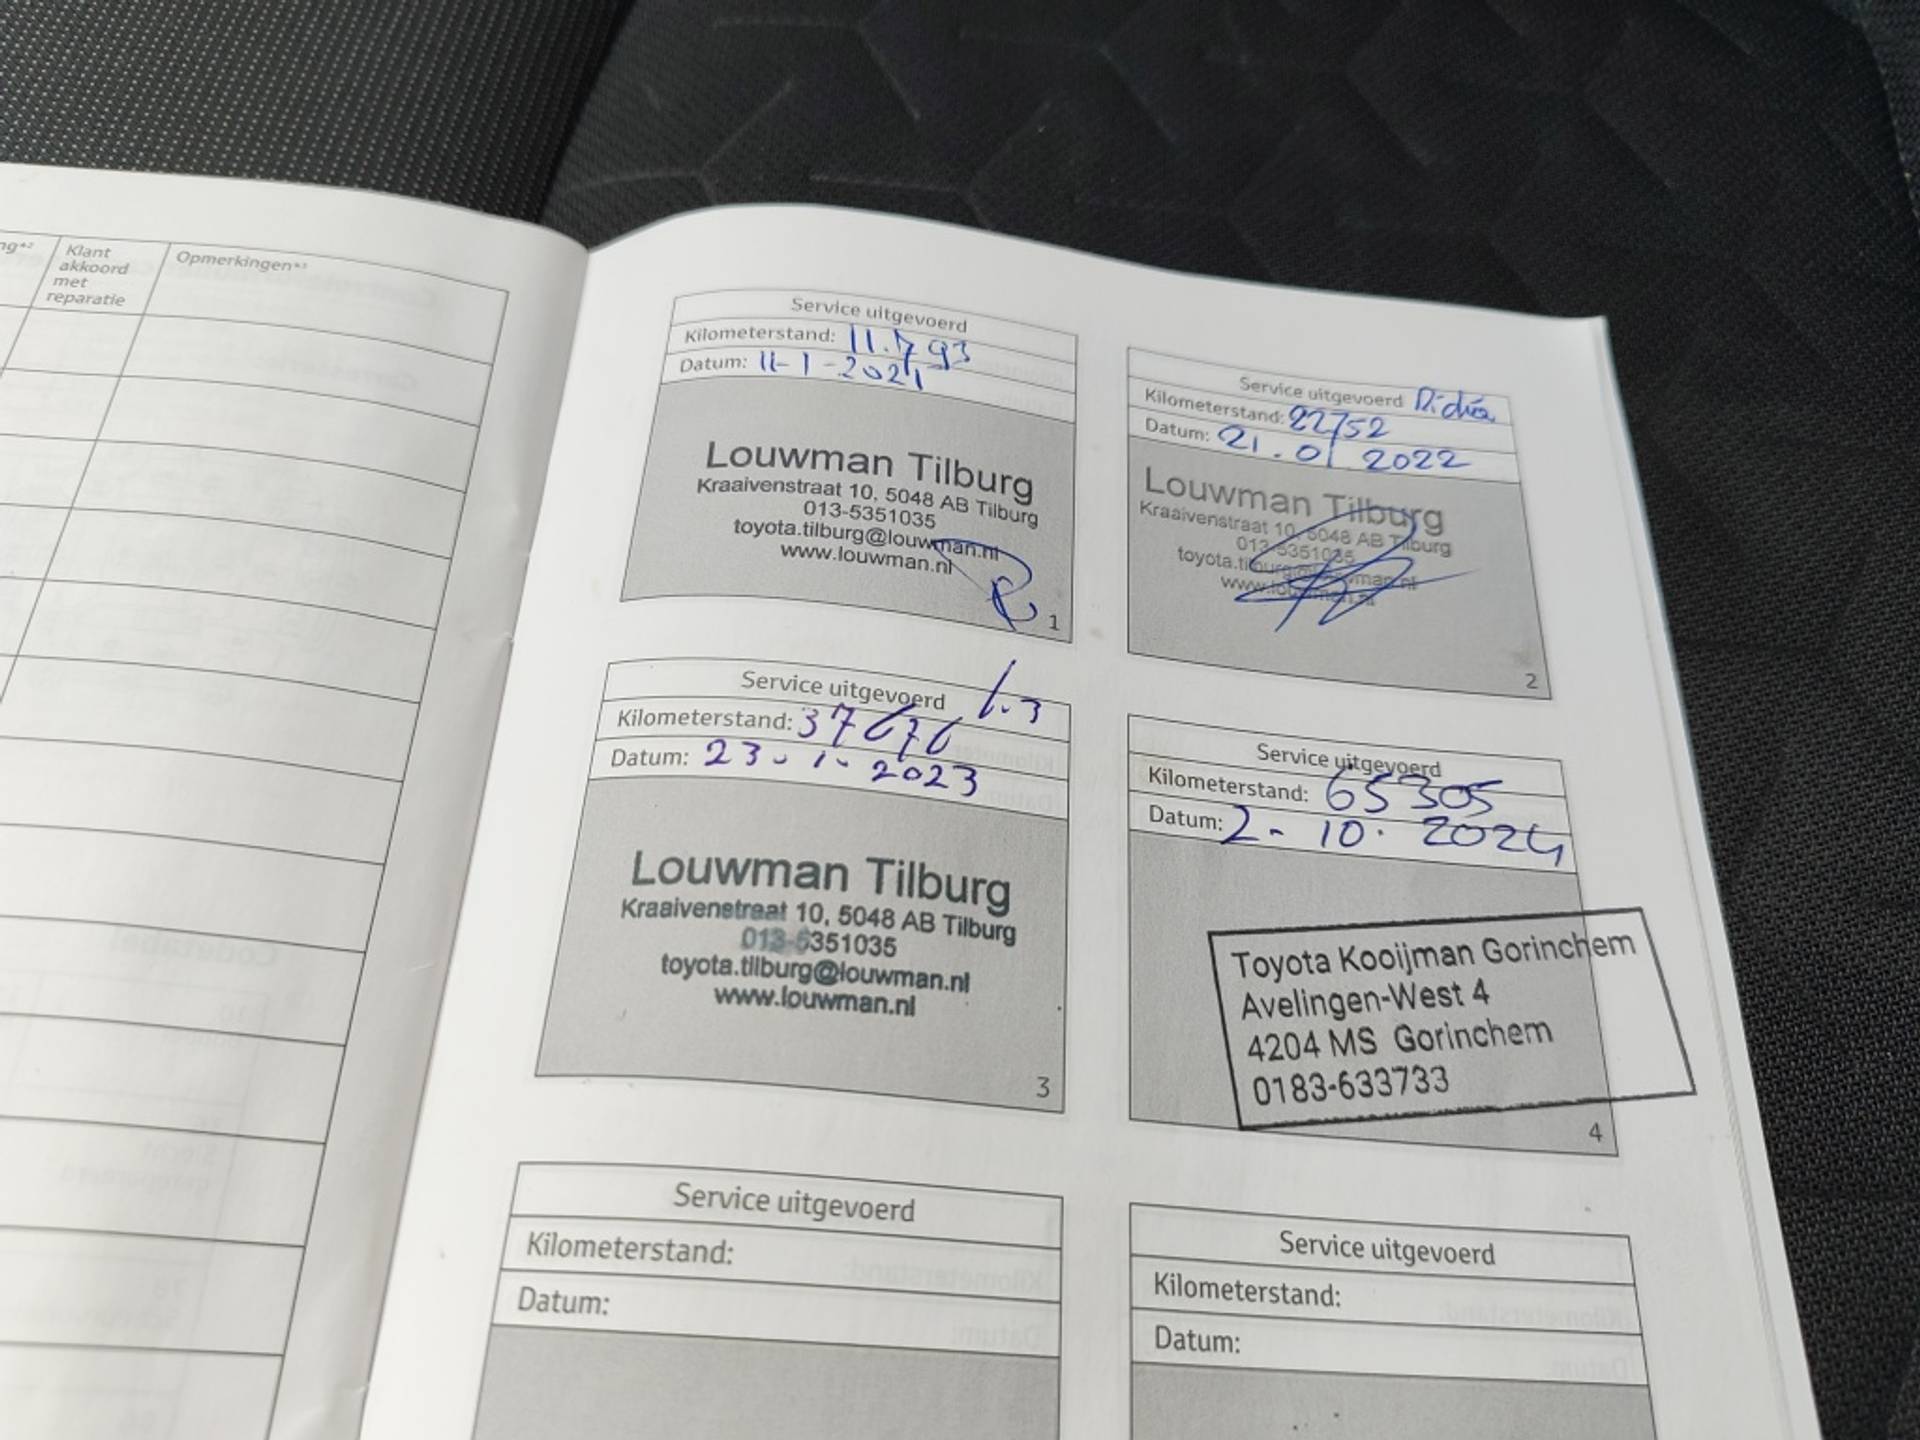 Klant
akkoord
met
reparatie
Opmerkingen*³
Service uitgevoerd
Kilometerstand: 11.793
Datum: 11-1-2021
Louwman Tilburg
Kraaivenstraat 10, 5048 AB Tilburg
013-5351035
toyota.tilburg@louwman.nl
www.louwman.nl
1
Service uitgevoerd
Kilometerstand: 22752
Datum: 21.01 2022
Louwman Tilburg
Kraaivenstraat 10, 5048 AB Tilburg
013-5351035
toyota.tilburg@louwman.nl
www.louwman.nl
2
Service uitgevoerd
Kilometerstand: 37676
Datum: 23-1-2023
Louwman Tilburg
Kraaivenstraat 10, 5048 AB Tilburg
013-5351035
toyota.tilburg@louwman.nl
www.louwman.nl
3
Service uitgevoerd
Kilometerstand: 65305
Datum: 2-10.2024
Toyota Kooijman Gorinchem
Avelingen-West 4
4204 MS Gorinchem
0183-633733
4
Service uitgevoerd
Kilometerstand:
Datum:
Service uitgevoerd
Kilometerstand:
Datum: